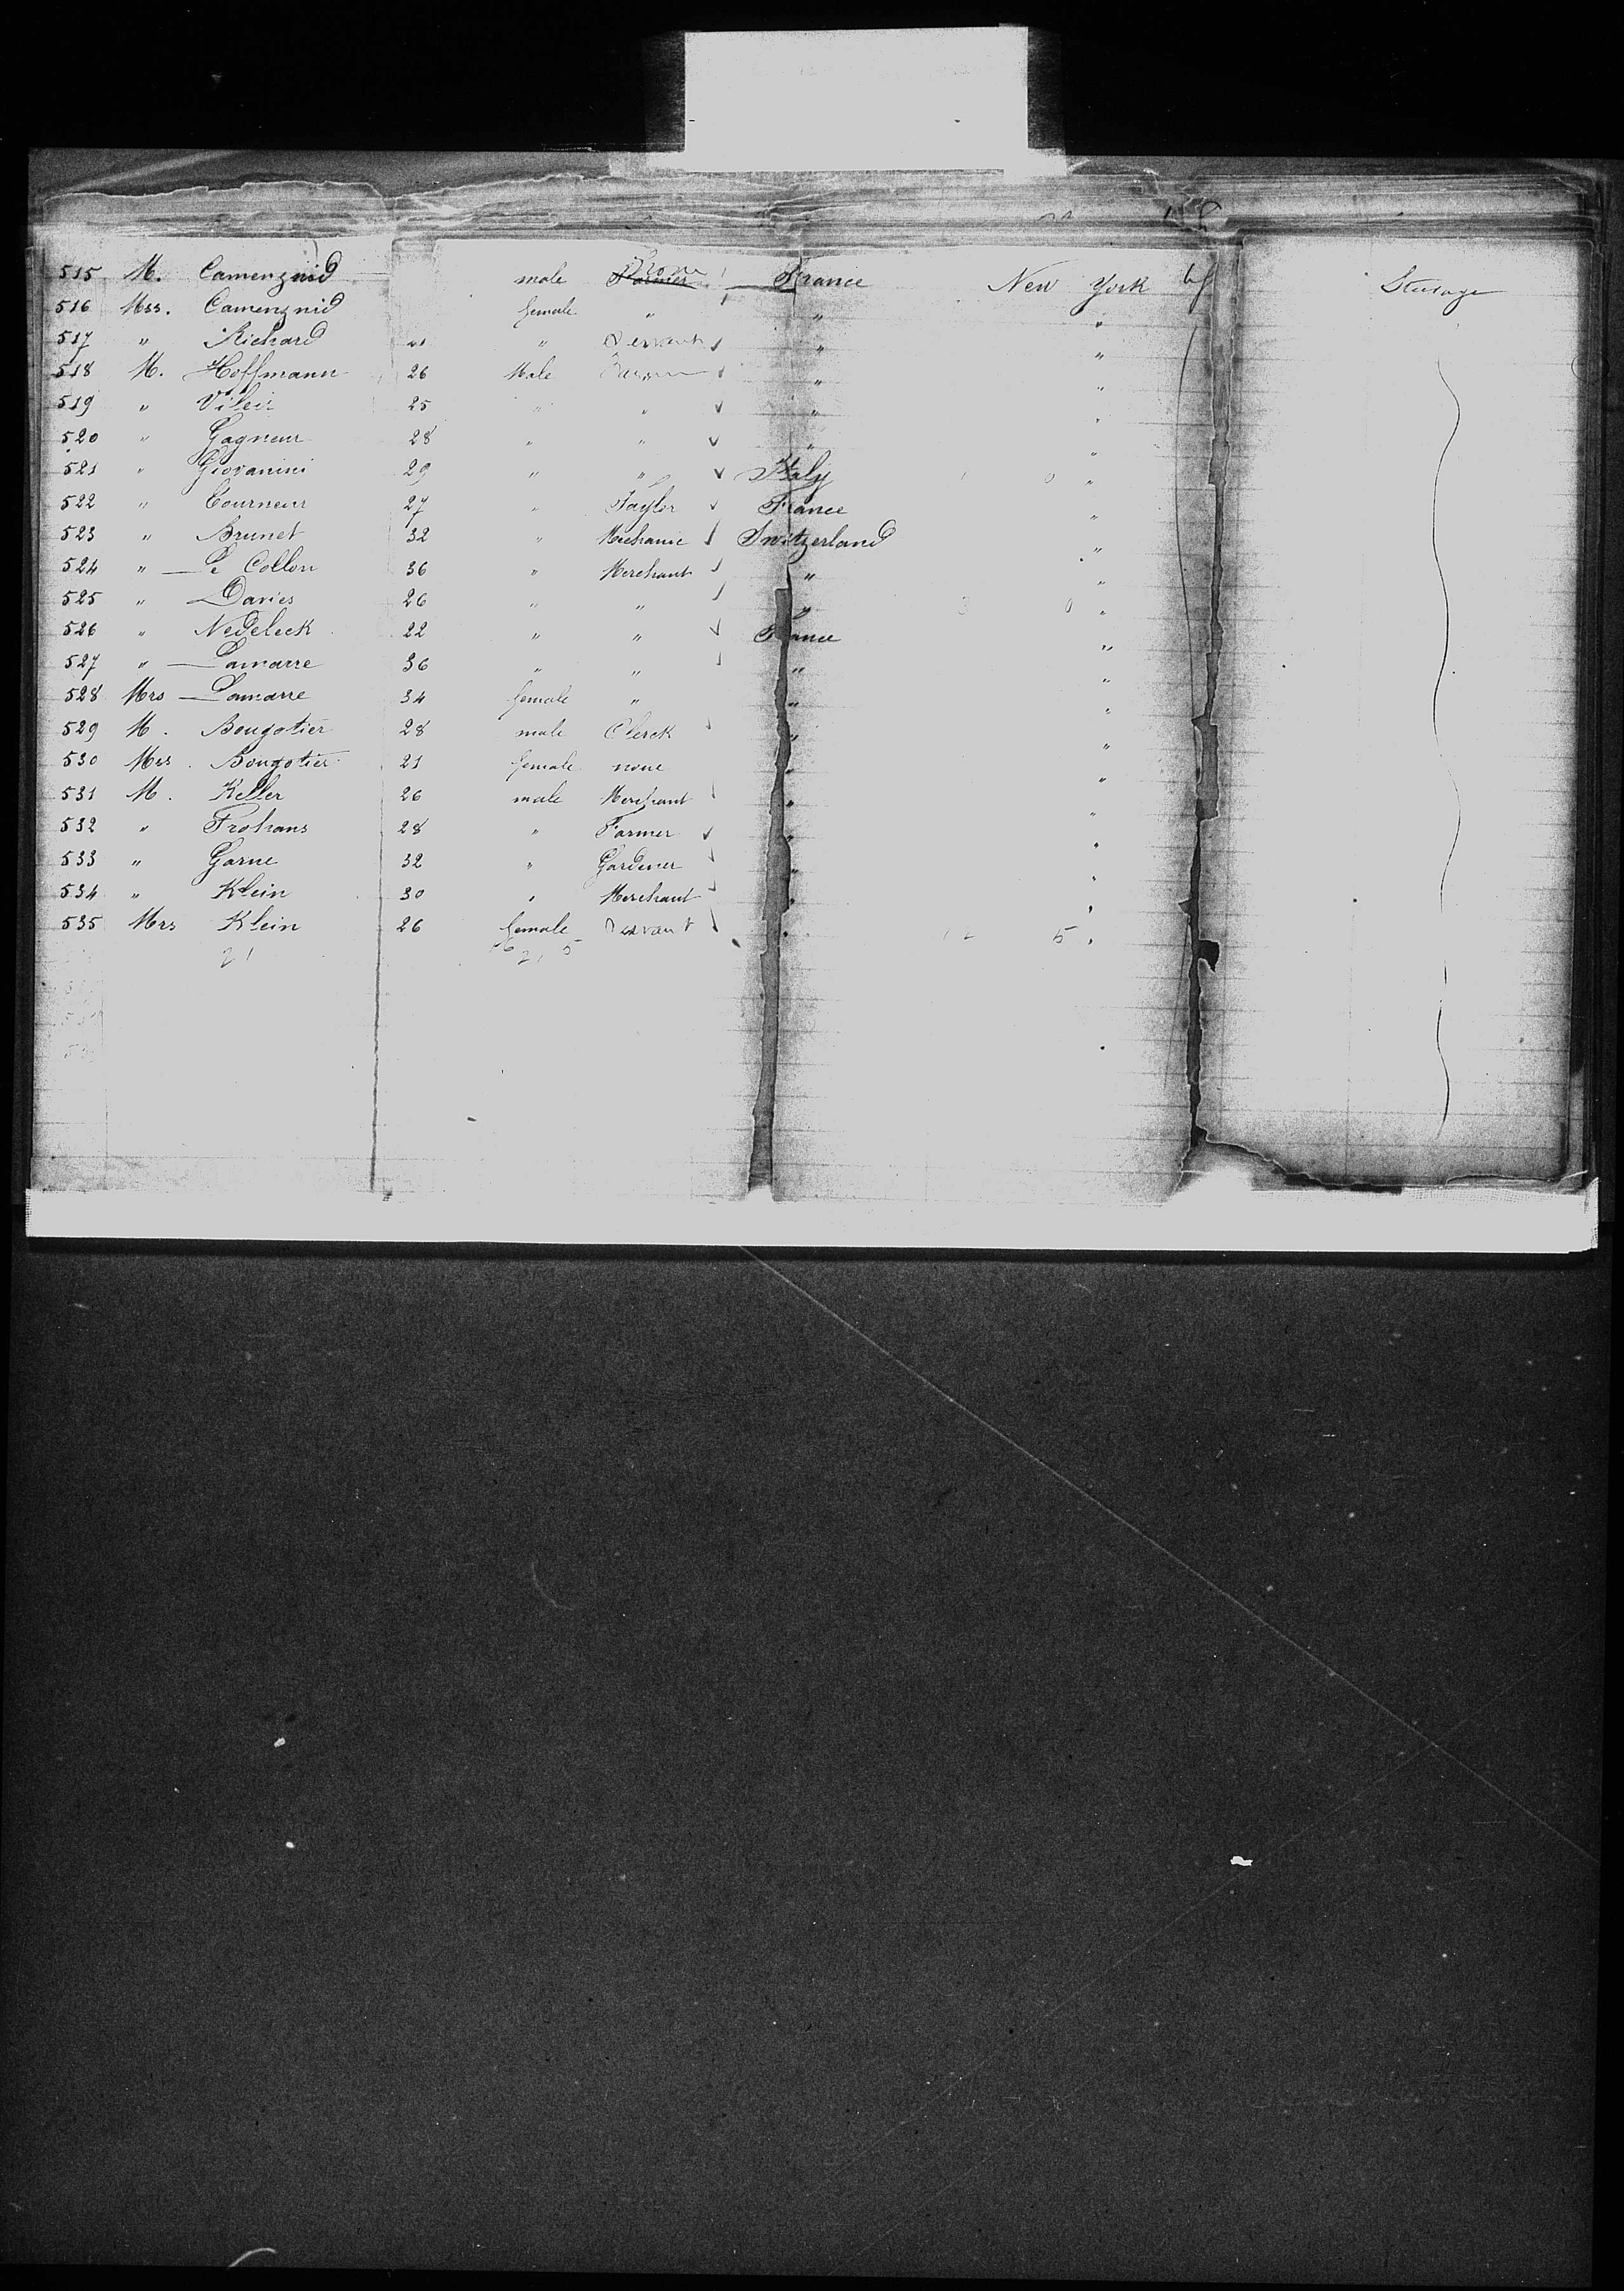 515 M. Camenznid male None Farmer France New York Steerage
516 Mrs. Camenznid female " " "
517 " Richard " Servant " "
518 M. Hoffmann 26 Male " "
519 " Vileir 25 " " " "
520 " Gagneur 28 " " " "
521 " Giovanini 29 " " Italy "
522 " Courneur 27 " Taylor France "
523 " Brunet 32 " Mechanic Switzerland "
524 " Le Collon 36 " Merchant " "
525 " Davies 26 " " " "
526 " Nedeleck 22 " " France "
527 " Lamarre 36 " " " "
528 Mrs Lamarre 34 female " " "
529 M. Bougotier 28 male Clerck " "
530 Mrs. Bougotier 21 female none " "
531 M. Keller 26 male Merchant " "
532 " Frohans 28 " Farmer " "
533 " Garne 32 " Gardener " "
534 " Klein 30 " Merchant " "
535 Mrs Klein 26 female Servant " 12 5 "
21 21 5